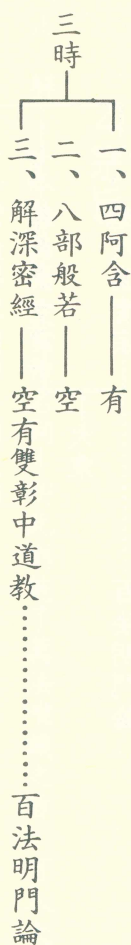 三時
一、四阿含——有
二、八部般若——空
三、解深密經——空有雙彰中道教………………百法明門論